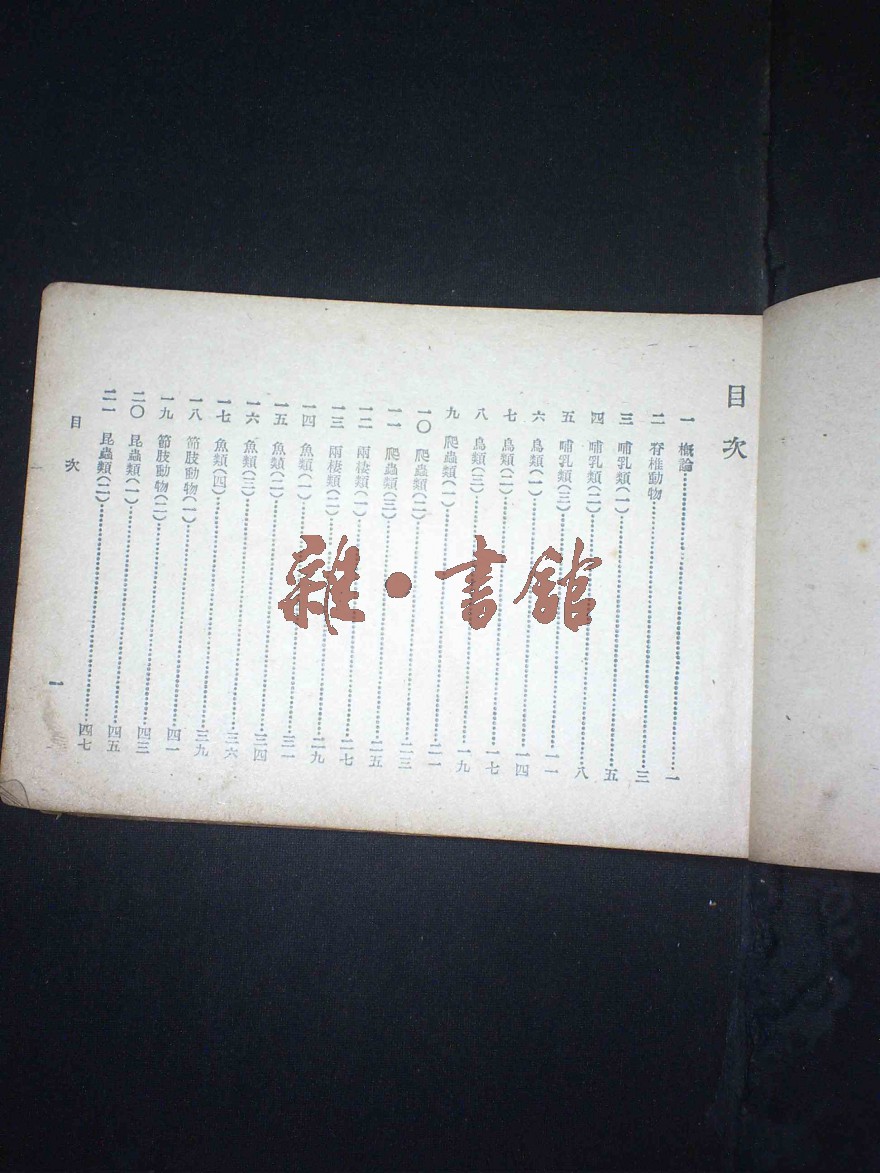 目次
一 槪論……一
二 脊椎動物……三
三 哺乳類(一)……五
四 哺乳類(二)……八
五 哺乳類(三)……一一
六 鳥類(一)……一四
七 鳥類(二)……一七
八 鳥類(三)……一九
九 爬蟲類(一)……二一
一〇 爬蟲類(二)……二三
一一 爬蟲類(三)……二五
一二 兩棲類(一)……二七
一三 兩棲類(二)……二九
一四 魚類(一)……三一
一五 魚類(二)……三四
一六 魚類(三)……三六
一七 魚類(四)……三九
一八 節肢動物(一)……四一
一九 節肢動物(二)……四三
二〇 昆蟲類(一)……四五
二一 昆蟲類(二)……四七
目次 一
雜·書館